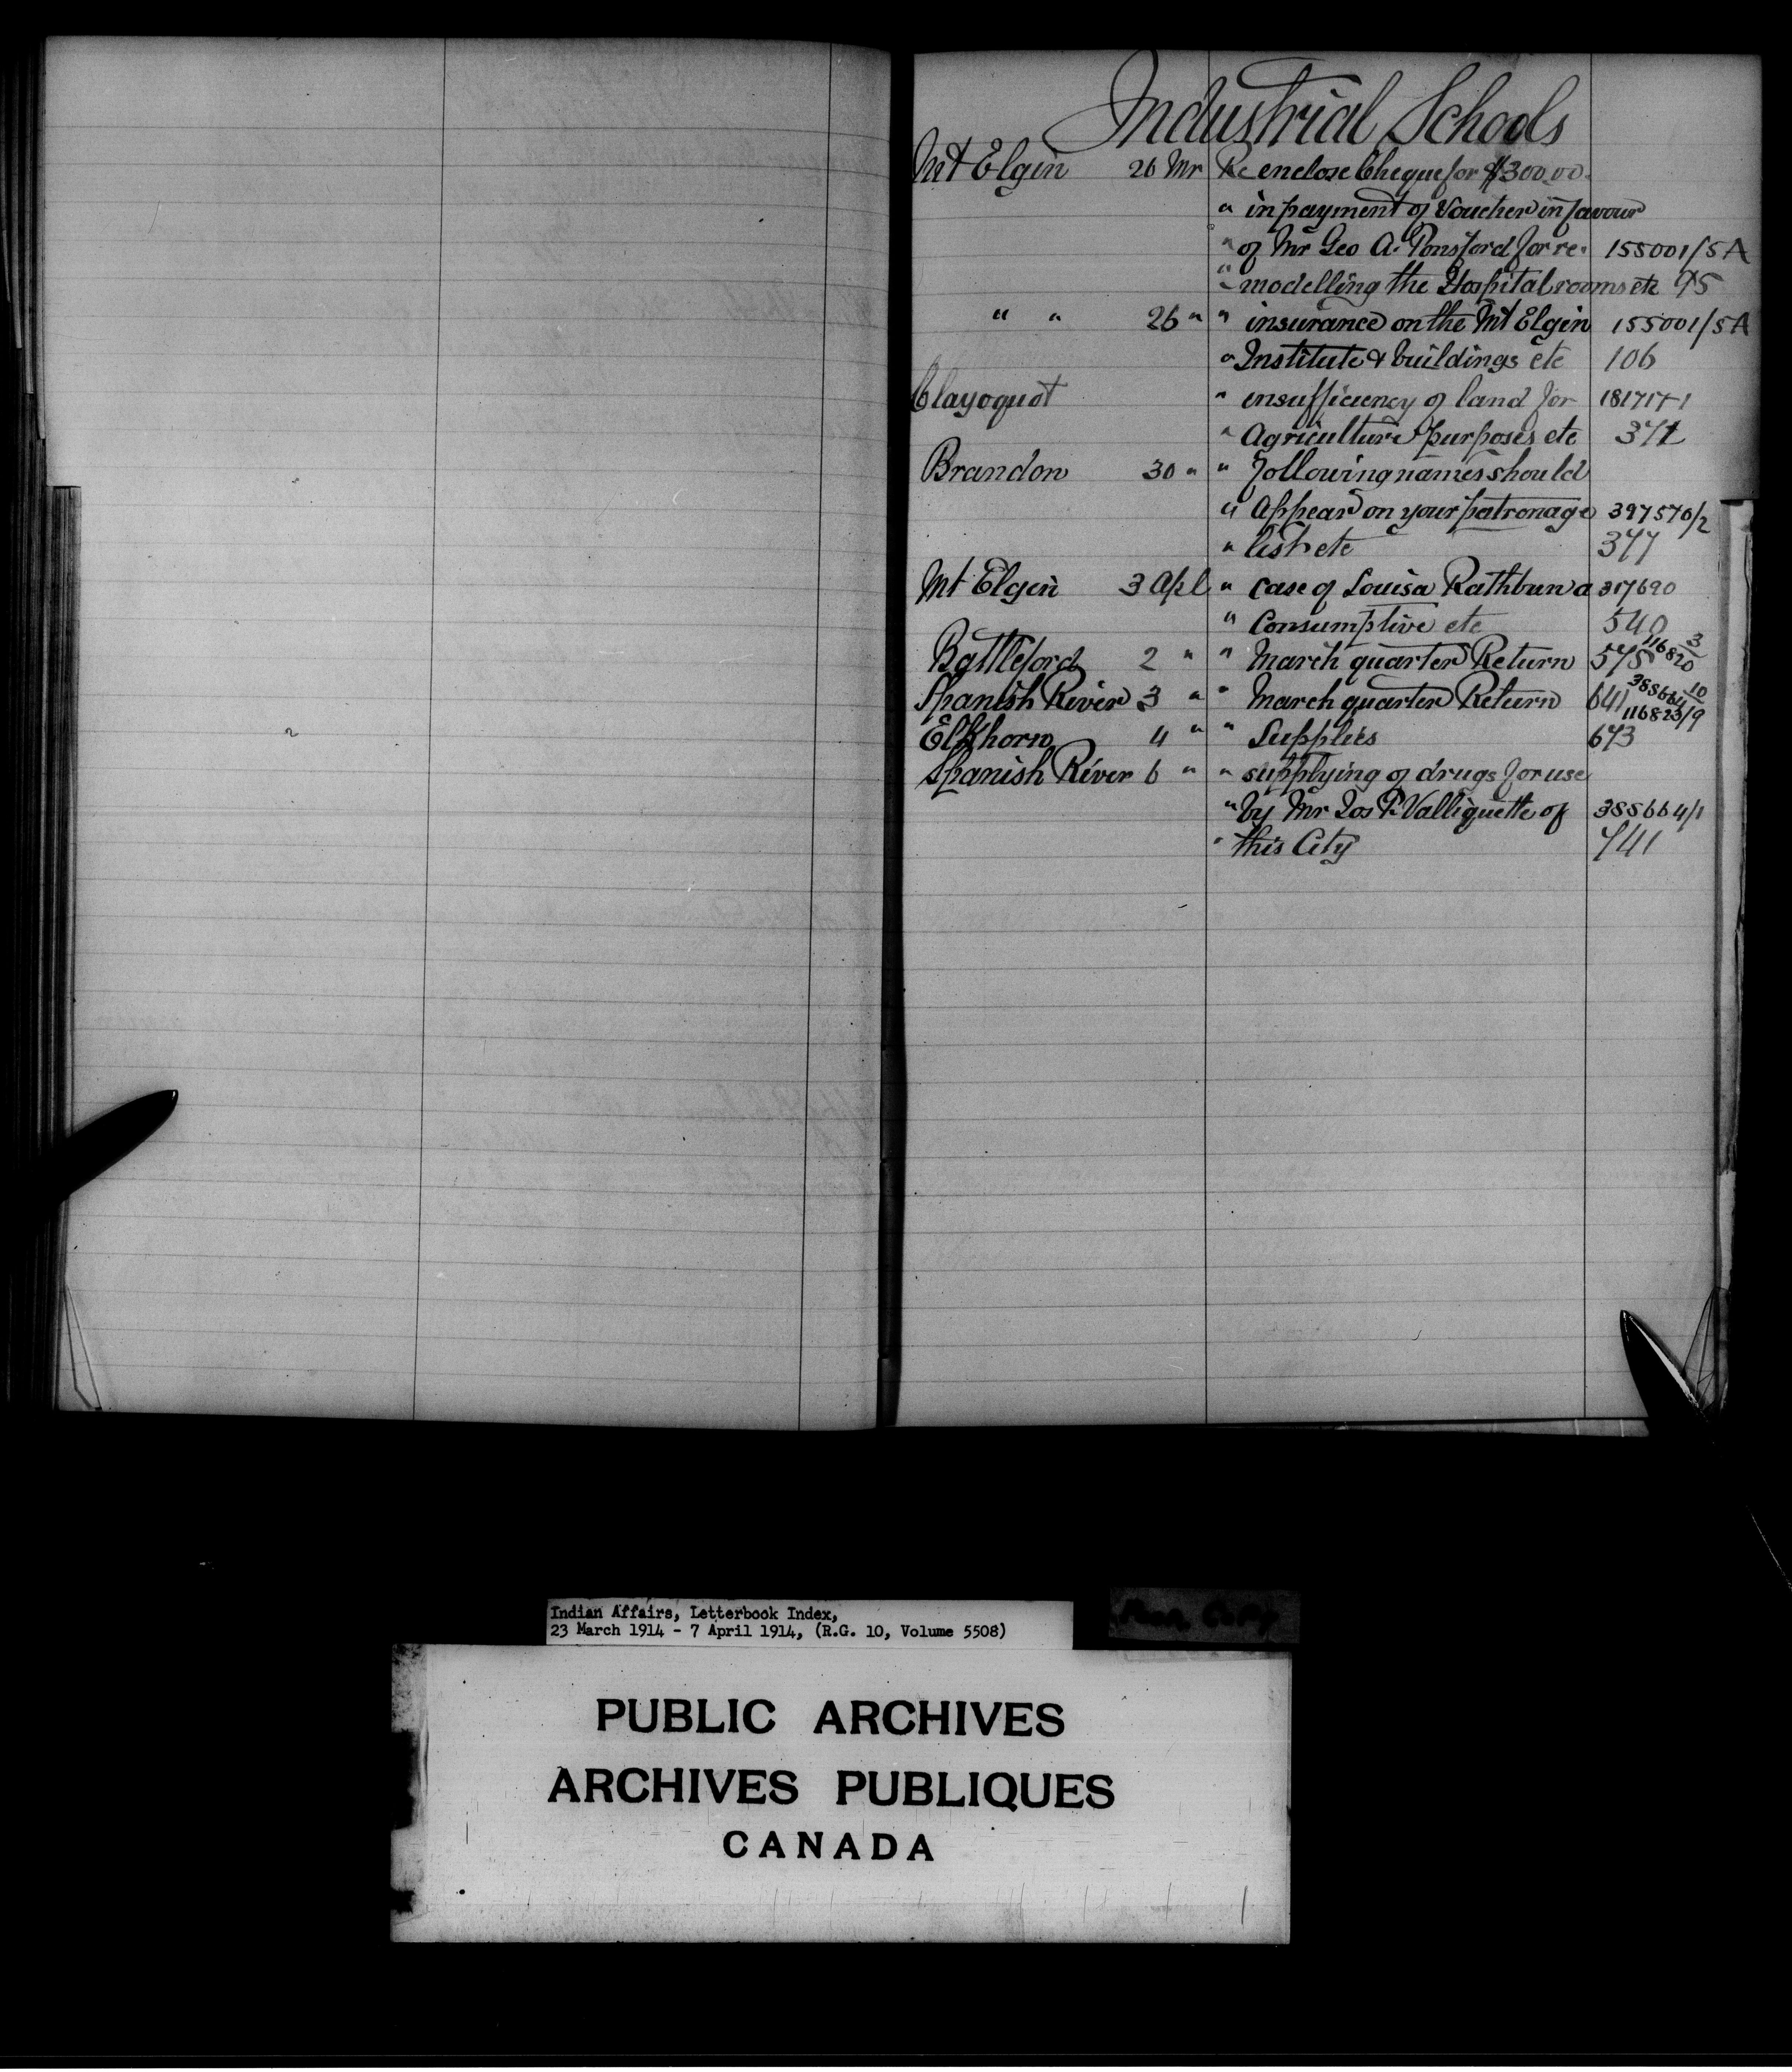 Industrial Schools
Mt Elgin 26 Mr Re enclose Cheque for $300.00.
" in payment of Voucher in favour
" of Mr Geo A. Ponsford for re- 155001/5A
" modelling the Hospital rooms etc 95
" " 26 " " insurance on the Mt Elgin 155001/5A
" Institute & buildings etc 106
Clayoquot " insufficiency of land for
" Agriculture purposes etc
Brandon 30 " " following names should
" Appear on your patronage 397570/2
" list etc 377
Mt Elgin 3 Apl " case of Louisa Rathbun a 317690
" Consumptive etc 540
Battleford 2 " " March quarter Return 575 116820/3
Spanish River 3 " " March quarter Return 641 388664/10
Elkhorn 4 " " Supplies 673 116823/9
Spanish River 6 " " supplying of drugs for use
" by Mr Jos P. Valliquette of 388664/1
" this City 741
Indian Affairs, Letterbook Index,
23 March 1914 - 7 April 1914, (R.G. 10, Volume 5508)
PUBLIC ARCHIVES
ARCHIVES PUBLIQUES
CANADA